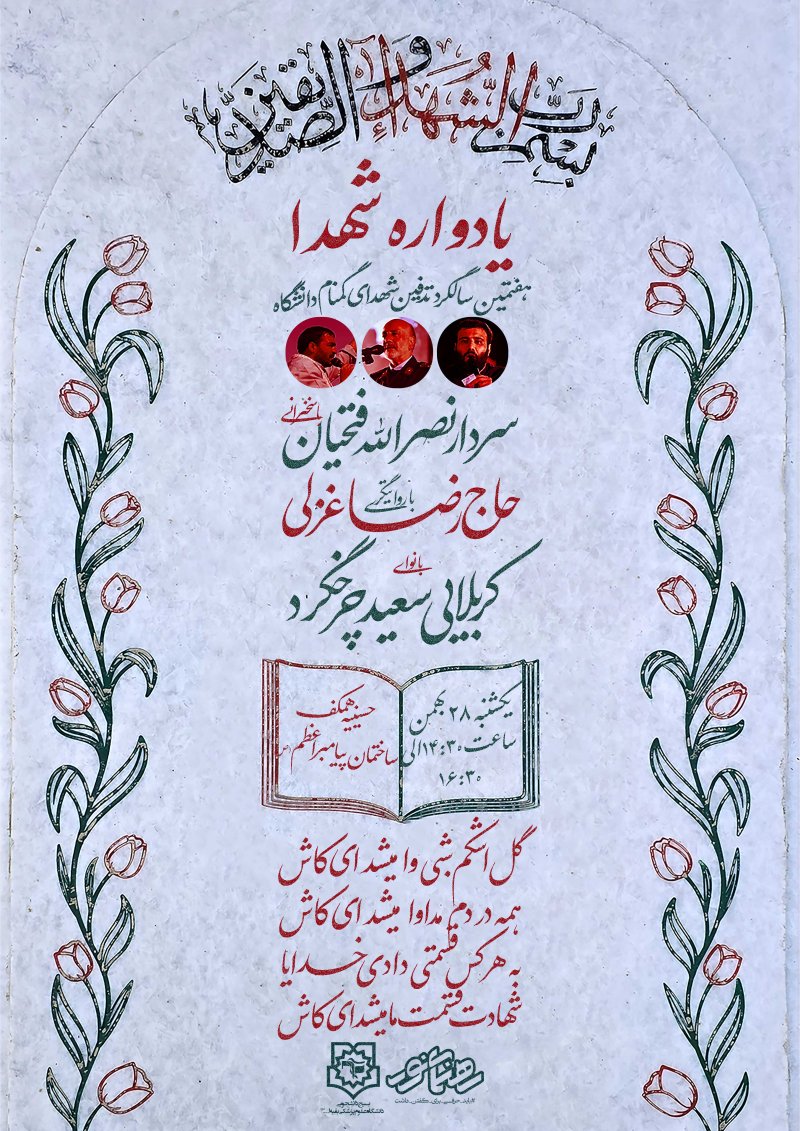 بسم رب الشهداء و الصدیقین
یادواره شهدا
هفتمین سالگرد تدفین شهدای گمنام دانشگاه
سردار نصرالله فتحیان
با سخنرانی
حاج رضا غزلی
با روایتگری
با نوای
کربلایی سعید چرخگرد
یکشنبه ۲۸ بهمن
ساعت ۱۴:۳۰ الی
۱۶:۳۰
حسینیه همکف
ساختمان پیامبر اعظم (ص)
گل اشکم شبی وا میشد ای کاش
همه دردم مداوا میشد ای کاش
به هر کس قسمتی دادی خدایا
شهادت قسمت ما میشد ای کاش
#باید_حرفی_برای_گفتن_داشت
بسیج دانشجویی